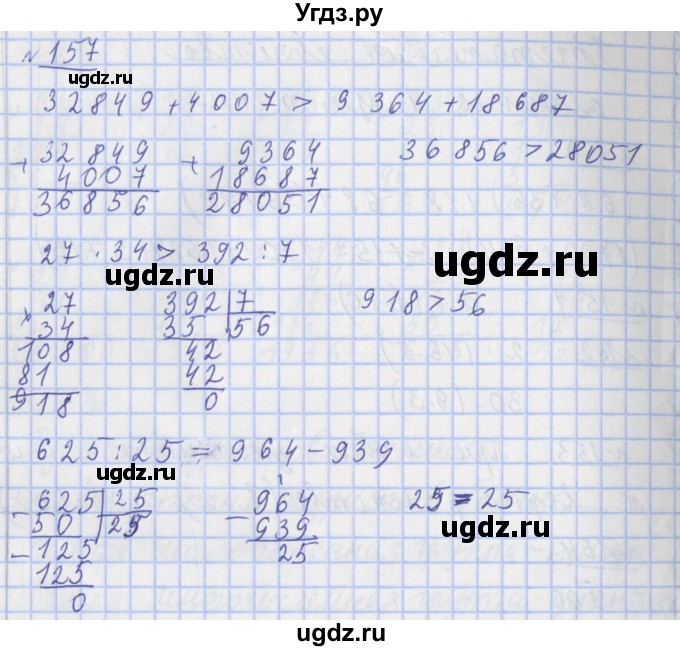 Угдз.ру
№ 157
ugdz.ru
32849 + 4007 > 9364 + 18687
+ 32849 + 9364 36856 > 28051
4007 18687
36856 28051
27 · 34 > 392 : 7
ugdz.ru
ugdz.ru
× 27 392 7 918 > 56
34 35 56
108 42
81 42
918 0
625 : 25 = 964 - 939
ugdz.ru
1
- 625 25 - 964 25 = 25
50 25 939
- 125 25
125
0
ugdz.ru
ugdz.ru